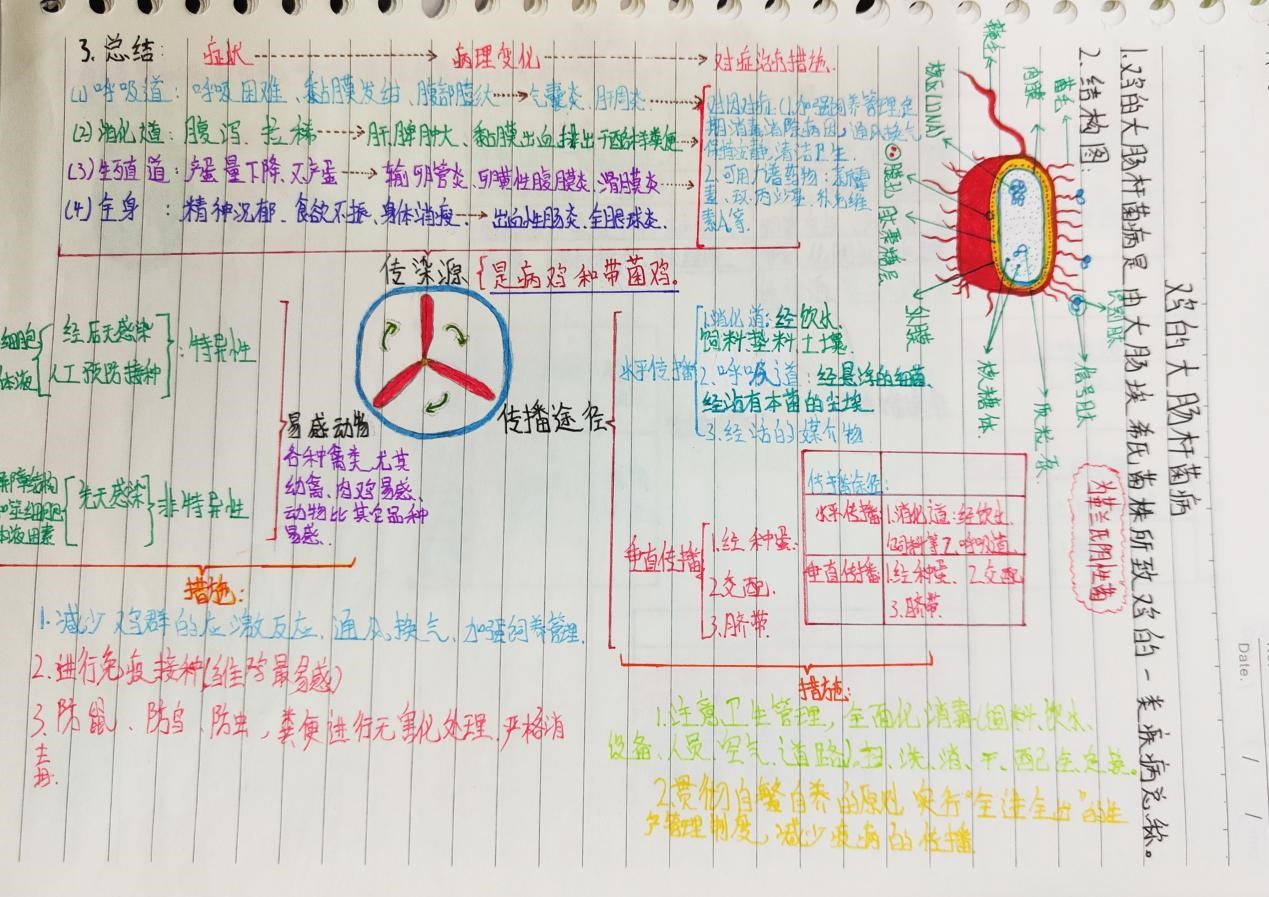 鸡的大肠杆菌病
1.鸡的大肠杆菌病是由大肠埃希氏菌株所致鸡的一类疾病总称。
2.结构图:
菌毛
内膜
鞭毛
核区(DNA)
膜孔
肽聚糖层
外膜
核糖体
质粒
信号肽
为革兰氏阴性菌
3.总结: 症状 病理变化 对症治疗措施.
(1)呼吸道: 呼吸困难、黏膜发绀、腹部膨大 气囊炎、肝周炎
(2)消化道: 腹泻、拉稀 肝脾肿大、黏膜出血,排出干酪样粪便
(3)生殖道: 产蛋量下降、不产蛋 输卵管炎、卵黄性腹膜炎、滑膜炎
(4)全身: 精神沉郁、食欲不振、身体消瘦 出血性肠炎、全眼球炎.
对因对症(1.加强饲养管理,定
期消毒消除病因,通风换气
保持安静,清洁卫生.
2.可用广谱药物:
素A等.
传染源{是病鸡和带菌鸡。
细胞
体液
经后天感染
人工预防接种
:特异性
屏障结构
吞噬细胞
体液因素
先天感染
非特异性
易感动物
各种禽类,尤其
幼禽、肉鸡易感、
动物比其它品种
易感.
传播途径
水平传播
1.消化道:经饮水、
饲料垫料土壤.
2.呼吸道:经悬浮的细菌、
经沾有本菌的尘埃
3.经活的媒介物
垂直传播
1.经种蛋:
2.交配.
3.脐带.
传播途径:
水平传播 1.消化道:经饮水
饲料等2.呼吸道.
垂直传播 1.经种蛋、2.交配
3.脐带.
措施:
1.减少鸡群的应激反应,通风,换气、加强饲养管理.
2.进行免疫接种(雏鸡最易感)
3.防鼠、防鸟、防虫,粪便进行无害化处理.严格消
毒.
措施:
1.注意卫生管理,全面化消毒(饲料、饮水、
设备、人员、空气、道路).扫、洗、消、干、
2.贯彻自繁自养的原则,实行"全进全出"的生
产管理制度,减少疫病的传播
Date.